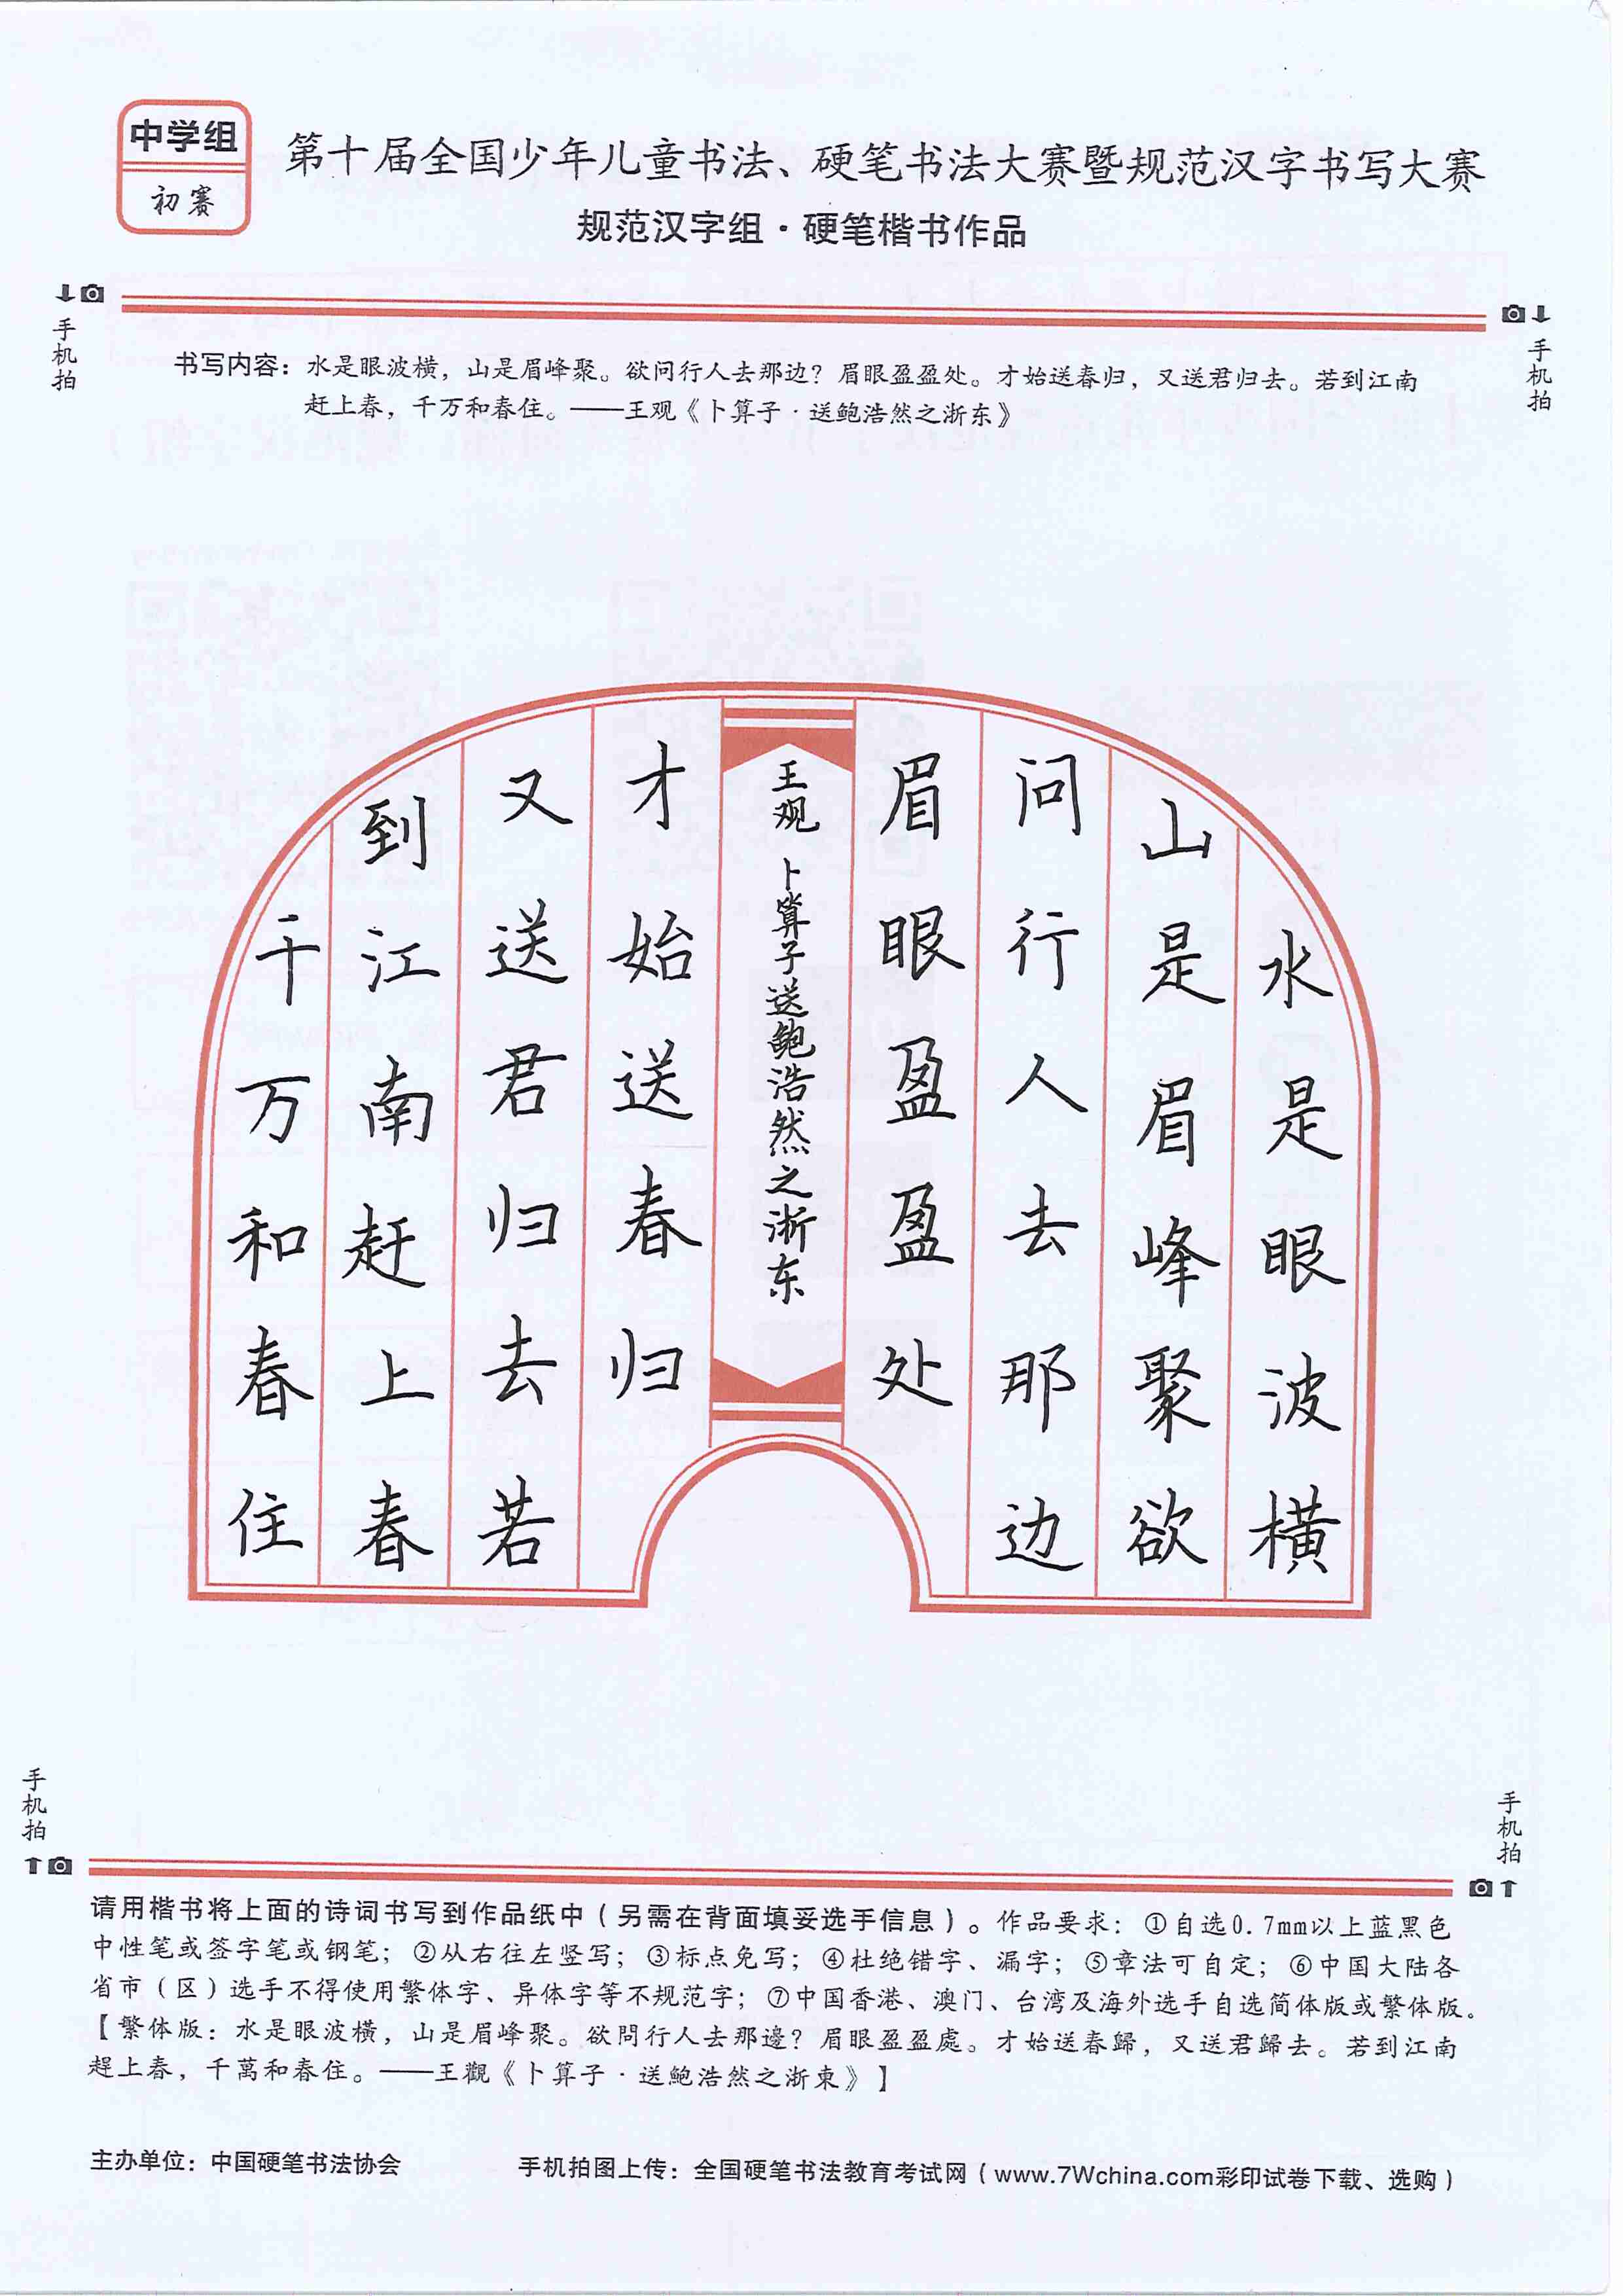 中学组
初赛
第十届全国少年儿童书法、硬笔书法大赛暨规范汉字书写大赛
规范汉字组·硬笔楷书作品
手机拍
手机拍
书写内容：水是眼波横，山是眉峰聚。欲问行人去那边？眉眼盈盈处。才始送春归，又送君归去。若到江南
赶上春，千万和春住。——王观《卜算子·送鲍浩然之浙东》
水是眼波横
山是眉峰聚欲
问行人去那边
眉眼盈盈处
王观 卜算子送鲍浩然之浙东
才始送春归
又送君归去若
到江南赶上春
千万和春住
手机拍
手机拍
请用楷书将上面的诗词书写到作品纸中（另需在背面填妥选手信息）。作品要求：①自选0.7mm以上蓝黑色
中性笔或签字笔或钢笔；②从右往左竖写；③标点免写；④杜绝错字、漏字；⑤章法可自定；⑥中国大陆各
省市（区）选手不得使用繁体字、异体字等不规范字；⑦中国香港、澳门、台湾及海外选手自选简体版或繁体版。
【繁体版：水是眼波橫，山是眉峰聚。欲問行人去那邊？眉眼盈盈處。才始送春歸，又送君歸去。若到江南
趕上春，千萬和春住。——王觀《卜算子·送鮑浩然之浙東》】
主办单位：中国硬笔书法协会
手机拍图上传：全国硬笔书法教育考试网（www.7Wchina.com彩印试卷下载、选购）